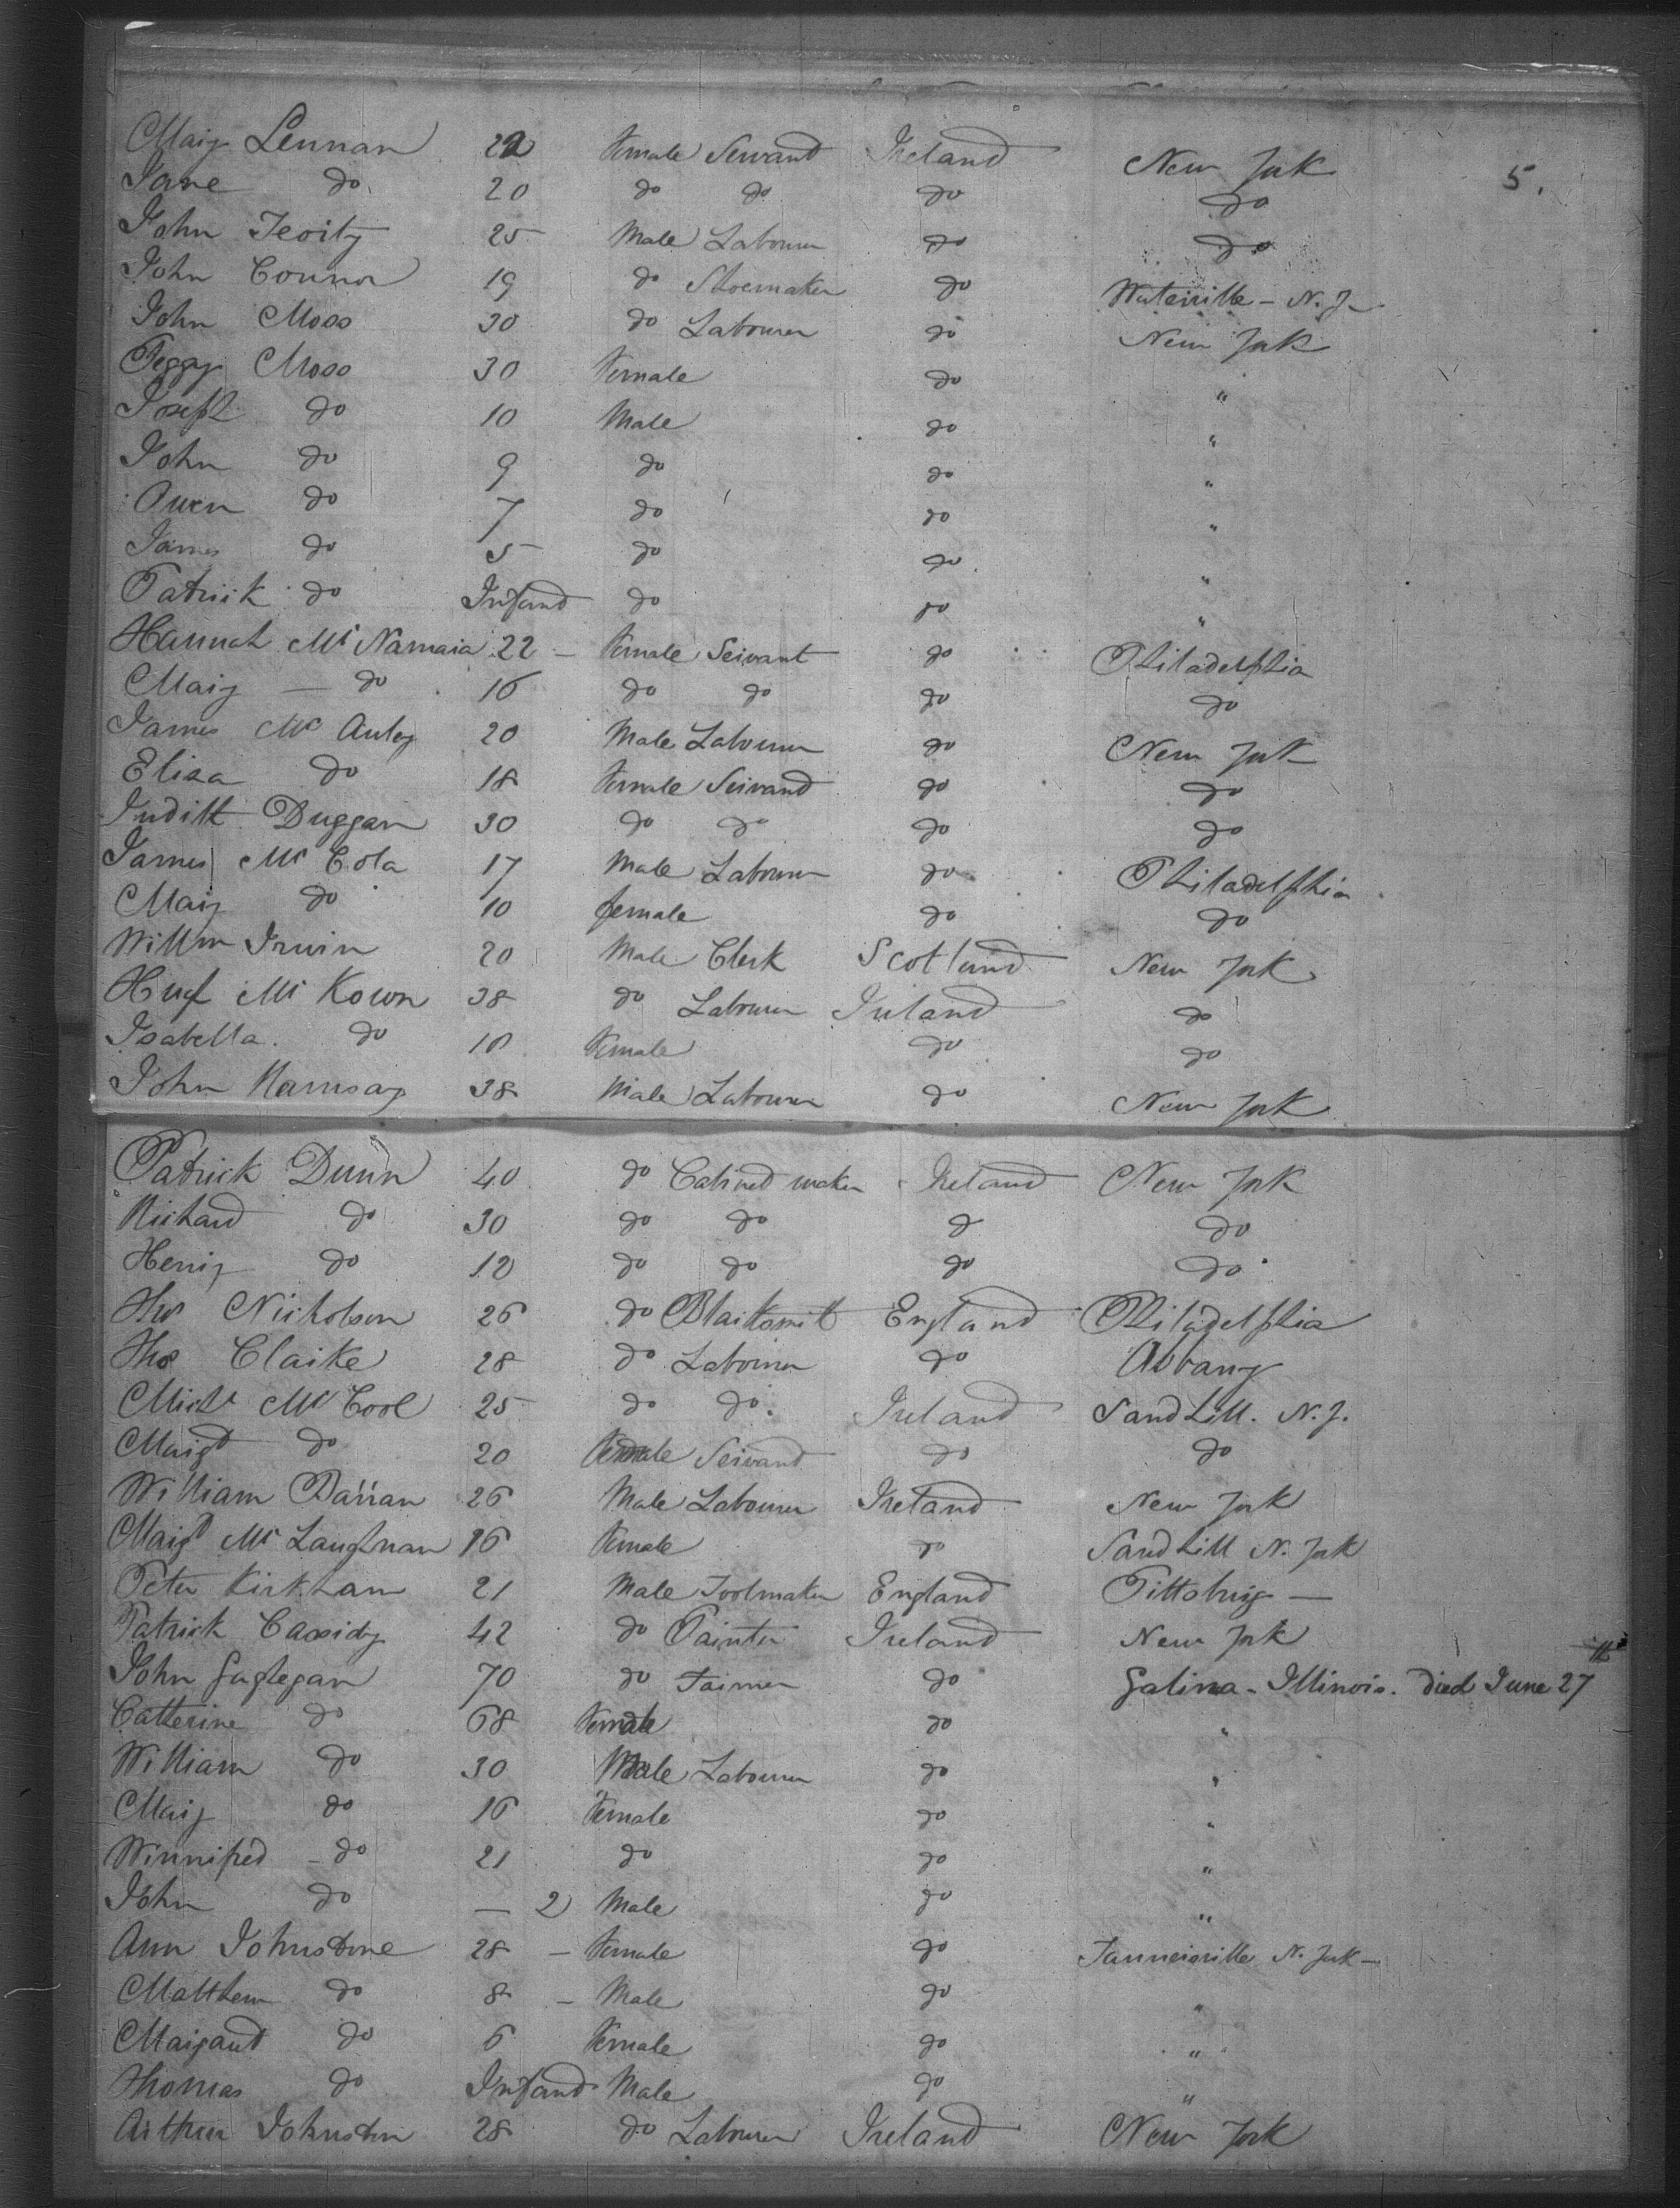 Mary Lennan 22 Female Servant Ireland New York 5.
Jane do 20 do do do do
John Feoity 25 Male Labourer do do
John Connor 19 do Shoemaker do Waterville - N. Y.
John Moss 30 do Labourer do New York
Peggy Moss 30 Female do "
Joseph do 10 Male do "
John do 9 do do "
Owen do 7 do do "
James do 5 do do "
Patrick do Infand do do "
Hannah McNamara 22 - Female Servant do Philadelphia
Mary - do 16 do do do do
James McAuley 20 Male Labourer do New York
Elisa do 18 Female Servand do do
Judith Duggan 30 do do do do
James McCola 17 Male Labourer do Philadelphia
Mary do 10 female do do
Willm Irwin 20 Male Clerk Scotland New York
Hugh McKown 38 do Labourer Ireland do
Isabella do Female do do
John Ramsay 38 Male Labourer do New York
Patrick Dunn 40 do Cabined maker Ireland New York
Richard do 30 do do do do
Henry do 12 do do do do
Thos Nicholson 26 do Blacksmith England Philadelphia
Thos Clarke 28 do Labourer do Albany
Michl McCool 25 do do Ireland Sandhill. N. Y.
Margt do 20 Female Servand do do
William Barran 26 Male Labourer Ireland New York
Margt McLaughnan 16 Female do Sandhill N. York
Peter Kirkham 21 Male Toolmaker England Pittsburg -
Patrick Cassidy 42 do Painter Ireland New York
John Gaghegan 70 do Farmer do Galina - Illinois. died June 27th
Catherine do 68 Female do "
William do 30 Male Labourer do "
Mary do 16 Female do "
Winnifred - do 21 do do "
John do - 2 Male do "
Ann Johnstone 28 - Female do Tannerville N. York -
Matthew do 8 - Male do "
Margaret do 6 Female do "
Thomas do Infand Male do "
Arthur Johnston 28 do Labourer Ireland New York